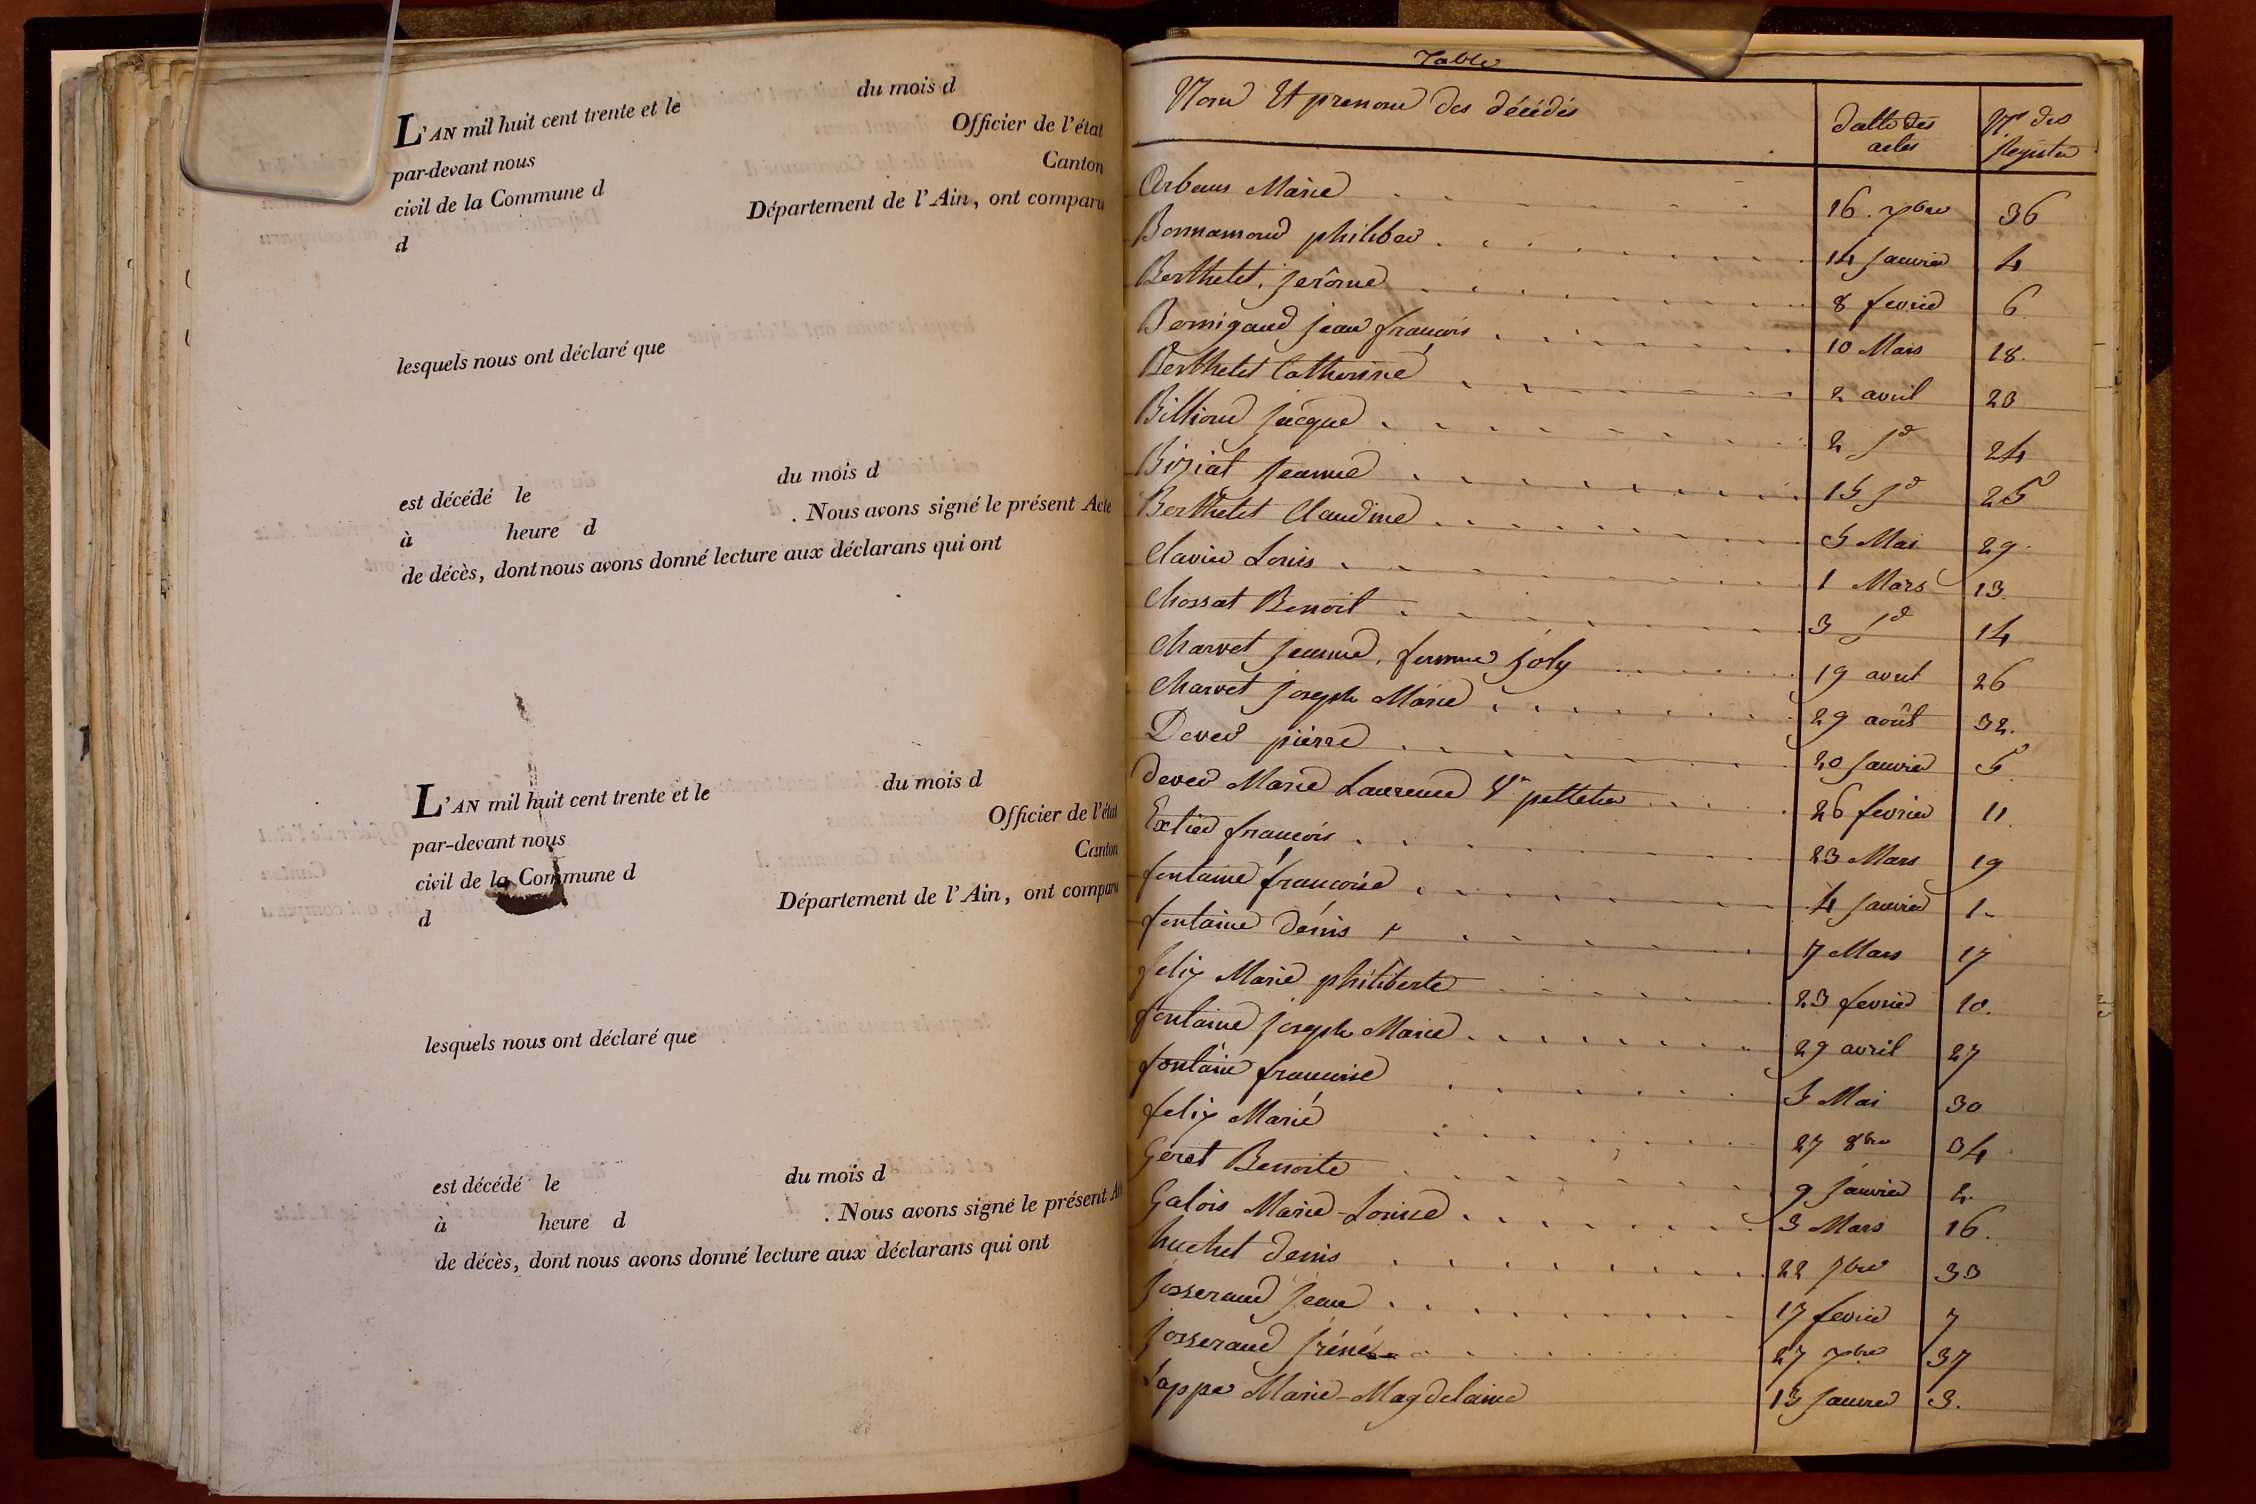 du mois d
L'AN mil huit cent trente et le
Officier de l'état
par-devant nous
Canton
civil de la Commune d
Département de l'Ain, ont comparu
d
lesquels nous ont déclaré que
est décédé le du mois d
à heure d . Nous avons signé le présent Acte
de décès, dont nous avons donné lecture aux déclarans qui ont
L'AN mil huit cent trente et le du mois d
par-devant nous Officier de l'état
civil de la Commune d Canton
d Département de l'Ain, ont comparu
lesquels nous ont déclaré que
est décédé le du mois d
à heure d . Nous avons signé le présent
de décès, dont nous avons donné lecture aux déclarans qui ont
Table
Nom Et prenom des décédés datte des actes Nos des Registre
Marie 16 36
philiber 14 Janvier 4
Berthelet Jerôme 8 fevrier 6
Bernigaud jean francois 10 Mars 18
Berthelet Catherine 2 avril 23
Billioud Jacque 2 Jd 24
Biziat Jeanne 15 Jd 25
Berthelet Claudine 5 Mai 29
Clavier Louis 1 Mars 13
Chossat Benoit 3 Jd 14
Charvet Jeanne, femme Joly 19 avril 26
Charvet Joseph Marie 29 août 32
Dever pierre 20 Janvier 5
dever Marie Laurence Ve pelletier 26 fevrier 11
Extier francois 23 Mars 19
fontaine francoise 4 Janvier 1
fontaine dénis 7 Mars 17
felix Marie philiberte 23 fevrier 10
fontaine Joseph Marie 29 avril 27
fontaine francoise 5 Mai 30
felix Marie 27 8bre 34
Geret Benoite 9 Janvier 2
Galois Marie-Louise 3 Mars 16
huchet denis 22 7bre 33
Josserand Jean 17 fevrier 7
Josserand Iréné 27 37
Marie-Magdelaine 13 Janvier 3